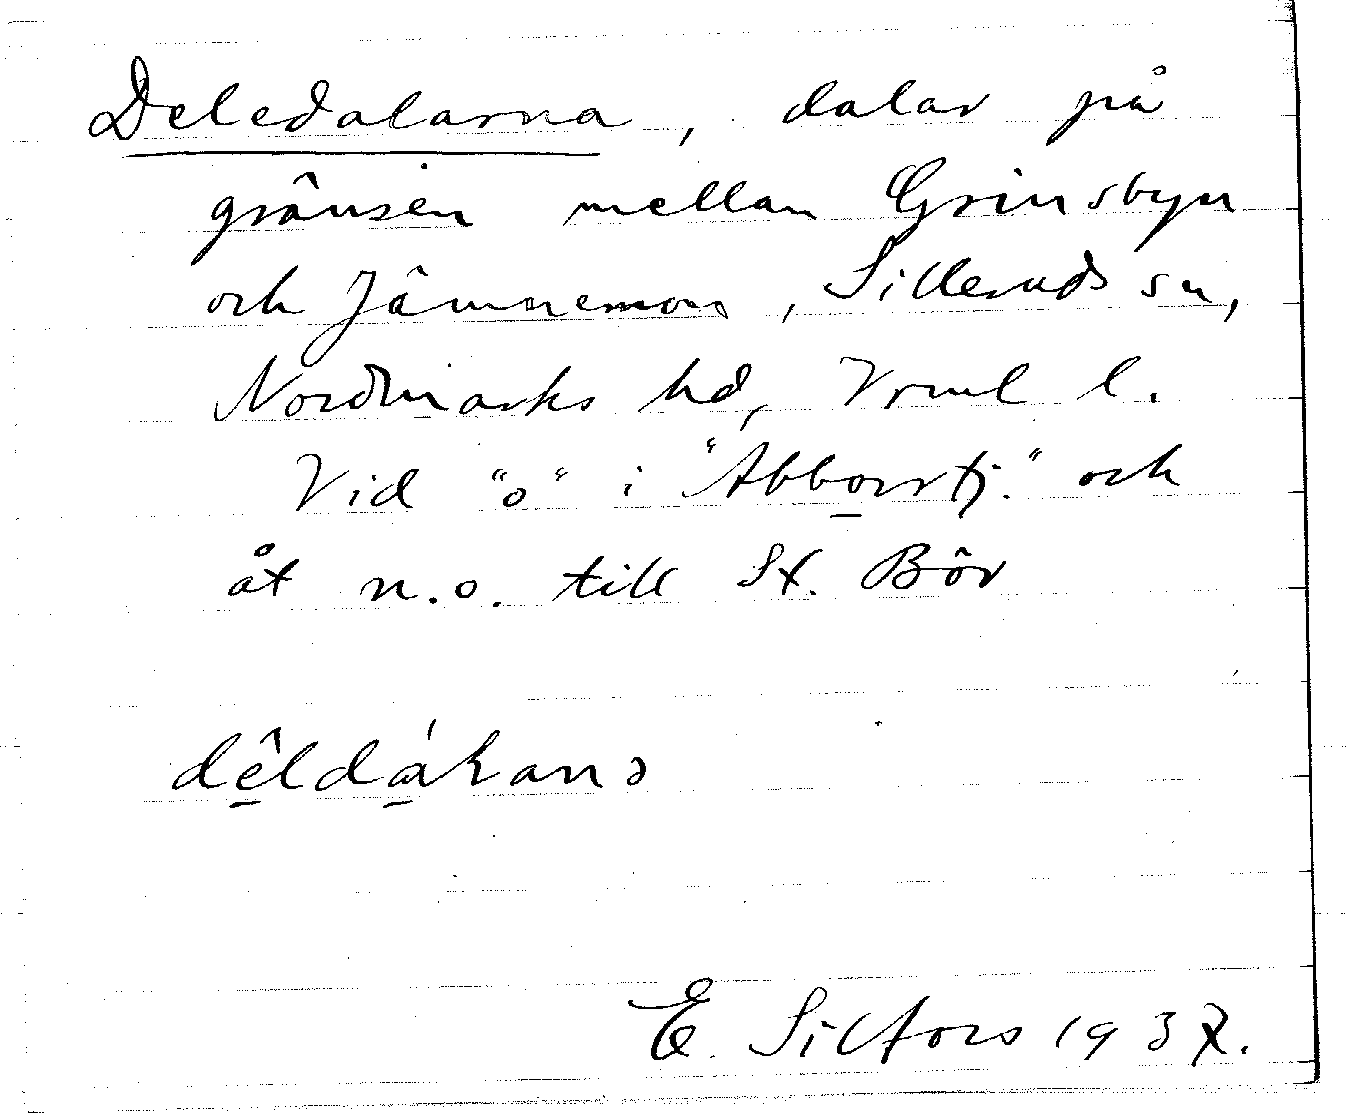 Deledalarna, dalar på
gränsen mellan Grinsbyn
och Jämnemon, Silleruds sn,
Nordmarks hd, Vrml l.
Vid "o" i "Abborrtj." och
åt n.o. till St. Bör
E. Silfors 1937.